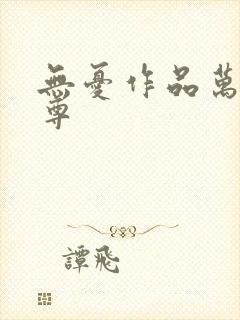 無憂作品萬
尊
譚飛